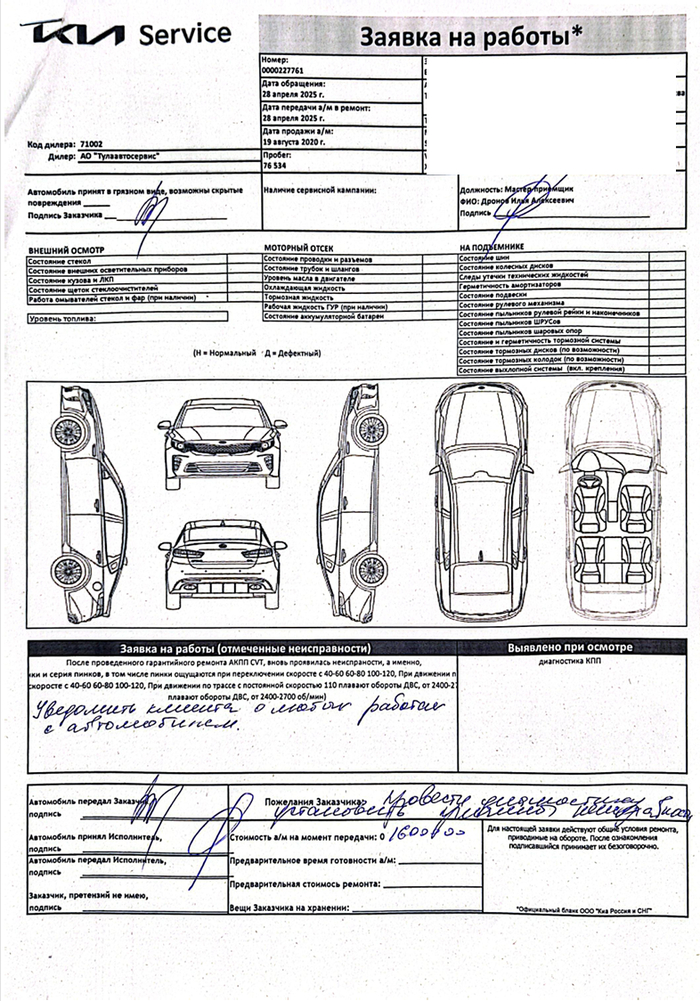 KIA Service
Заявка на работы*
Номер:
0000227761
Дата обращения:
28 апреля 2025 г.
Дата передачи а/м в ремонт:
28 апреля 2025 г.
Дата продажи а/м:
19 августа 2020 г.
Код дилера: 71002
Дилер: АО "Тулаавтосервис"
Пробег:
76 534
Автомобиль принят в грязном виде, возможны скрытые
повреждения
Подпись Заказчика
Наличие сервисной кампании:
Должность: Мастер приемщик
ФИО: Дронов Илья Алексеевич
Подпись
ВНЕШНИЙ ОСМОТР
Состояние стекол
Состояние внешних осветительных приборов
Состояние кузова и ЛКП
Состояние щеток стеклоочистителей
Работа омывателей стекол и фар (при наличии)
Уровень топлива:
МОТОРНЫЙ ОТСЕК
Состояние проводки и разъемов
Состояние трубок и шлангов
Уровень масла в двигателе
Охлаждающая жидкость
Тормозная жидкость
Рабочая жидкость ГУР (при наличии)
Состояние аккумуляторной батареи
НА ПОДЪЕМНИКЕ
Состояние шин
Состояние колесных дисков
Следы утечки технических жидкостей
Герметичность амортизаторов
Состояние подвески
Состояние рулевого механизма
Состояние пыльников рулевой рейки и наконечников
Состояние пыльников ШРУСов
Состояние пыльников шаровых опор
Состояние и герметичность тормозной системы
Состояние тормозных дисков (по возможности)
Состояние тормозных колодок (по возможности)
Состояние выхлопной системы (вкл. крепления)
(Н = Нормальный Д = Дефектный)
Заявка на работы (отмеченные неисправности)
После проведенного гарантийного ремонта АКПП CVT, вновь проявилась неисправность, а именно,
ки и серия пинков, в том числе пинки ощущаются при переключении скоросте с 40-60 60-80 100-120, При движении п
скоросте с 40-60 60-80 100-120, При движении по трассе с постоянной скоростью 110 плавают обороты ДВС, от 2400-27
плавают обороты ДВС, от 2400-2700 об/мин)
Уведомить клиента о любых работах
с автомобилем.
Выявлено при осмотре
диагностика КПП
Автомобиль передал Заказчик,
подпись
Автомобиль принял Исполнитель,
подпись
Автомобиль передал Исполнитель,
подпись
Заказчик, претензий не имею,
подпись
Пожелания Заказчика: провести диагностику
установить причину неисправности
Стоимость а/м на момент передачи: 0 1600000
Предварительное время готовности а/м:
Предварительная стоимость ремонта:
Вещи Заказчика на хранении:
Для настоящей заявки действуют общие условия ремонта,
приводимые на обороте. После ознакомления
подписавшийся принимает их безоговорочно.
*Официальный бланк ООО "Киа Россия и СНГ"